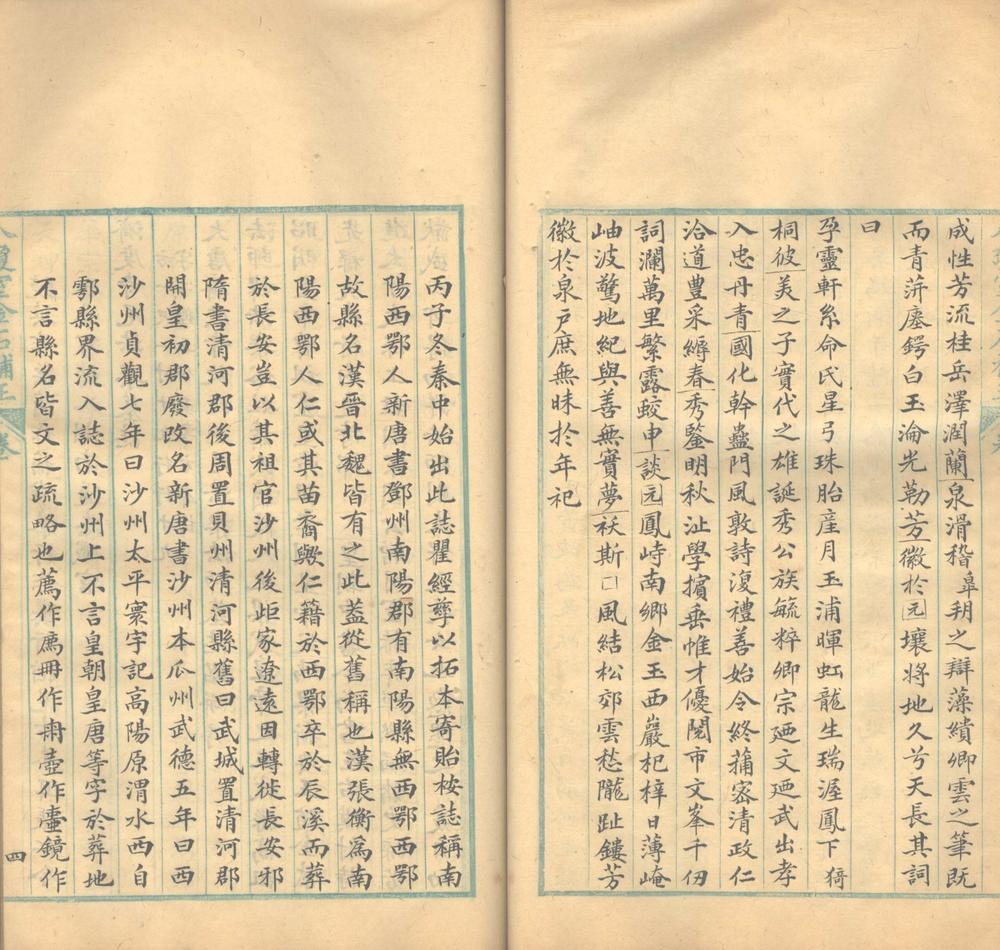 成性芳流桂岳澤潤蘭泉滑稽皐朔之辯藻繢卿雲之筆既
而青萍㕓鍔白玉淪光勒芳徽於元壤將地久兮天長其詞
曰
孕靈軒系命氏星弓珠胎產月玉浦暉虹龍生瑞渥鳳下猗
桐彼美之子實代之雄誕秀公族毓粹卿宗廼文廼武出孝
入忠丹青國化幹蠱門風敦詩復禮善始令終蒲密清政仁
洽道豊采縟春秀鑒明秋沚學擯垂帷才優閱市文峯千仞
詞瀾萬里繁露蛟申談元鳳峙南鄉金玉西巖杞梓日薄崦
岫波驚地紀與善無實夢祅斯□風結松郊雲愁隴趾鏤芳
徽於泉戶庶無昧於年祀
丙子冬秦中始出此誌瞿經孳以拓本寄貽桉誌稱南
陽西鄂人新唐書鄧州南陽郡有南陽縣無西鄂西鄂
故縣名漢晉北魏皆有之此蓋從舊稱也漢張衡為南
陽西鄂人仁或其苗裔歟仁籍於西鄂卒於辰溪而葬
於長安豈以其祖官沙州後距家遼遠因轉徙長安邪
隋書清河郡後周置貝州清河縣舊曰武城置清河郡
開皇初郡廢改名新唐書沙州本瓜州武德五年曰西
沙州貞觀七年曰沙州太平寰宇記高陽原渭水西自
鄠縣界流入誌於沙州上不言皇朝皇唐等字於葬地
不言縣名皆文之疏略也薦作廌冊作𠕋壺作壷鏡作
四